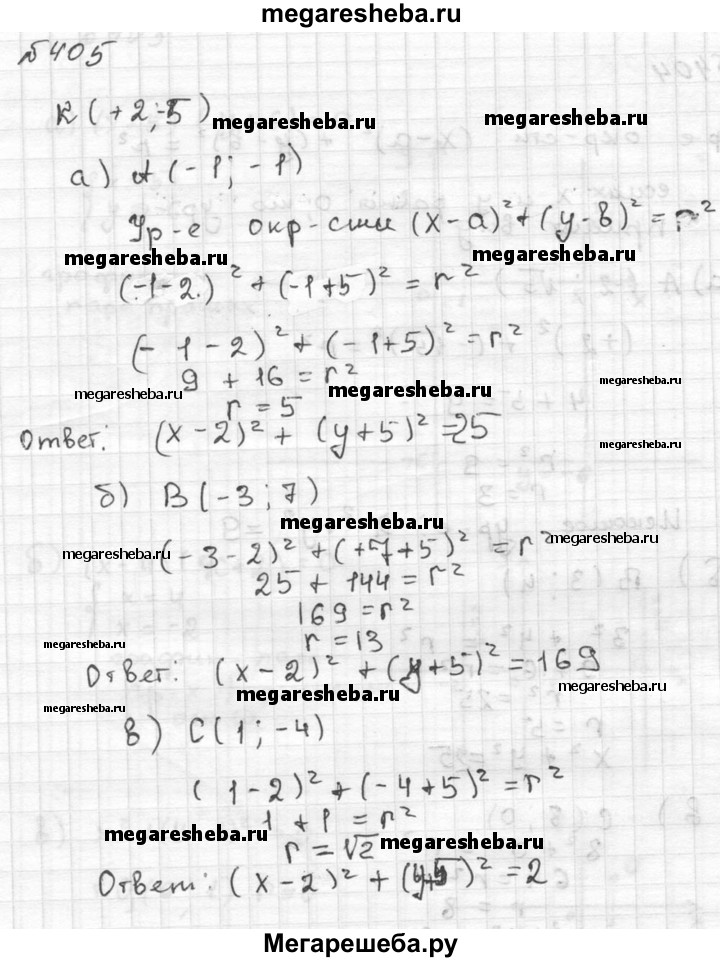 megaresheba.ru
№405
K(+2;-5)
megaresheba.ru
megaresheba.ru
а) A(-1; -1)
Ур-е окр-сти (x-a)²+(y-b)²=r²
megaresheba.ru
megaresheba.ru
(-1-2)² + (-1+5)² = r²
(-1-2)² + (-1+5)² = r²
9 + 16 = r²
megaresheba.ru
megaresheba.ru
megaresheba.ru
r = 5
Ответ: (x-2)² + (y+5)² = 25
megaresheba.ru
megaresheba.ru
б) B(-3; 7)
megaresheba.ru
(-3-2)² + (+7+5)² = r²
megaresheba.ru
megaresheba.ru
25 + 144 = r²
169 = r²
r = 13
megaresheba.ru
Ответ: (x-2)² + (y+5)² = 169
megaresheba.ru
megaresheba.ru
megaresheba.ru
в) C(1; -4)
(1-2)² + (-4+5)² = r²
1 + 1 = r²
megaresheba.ru
megaresheba.ru
r = √2
Ответ: (x-2)² + (y+5)² = 2
Мегарешеба.ру